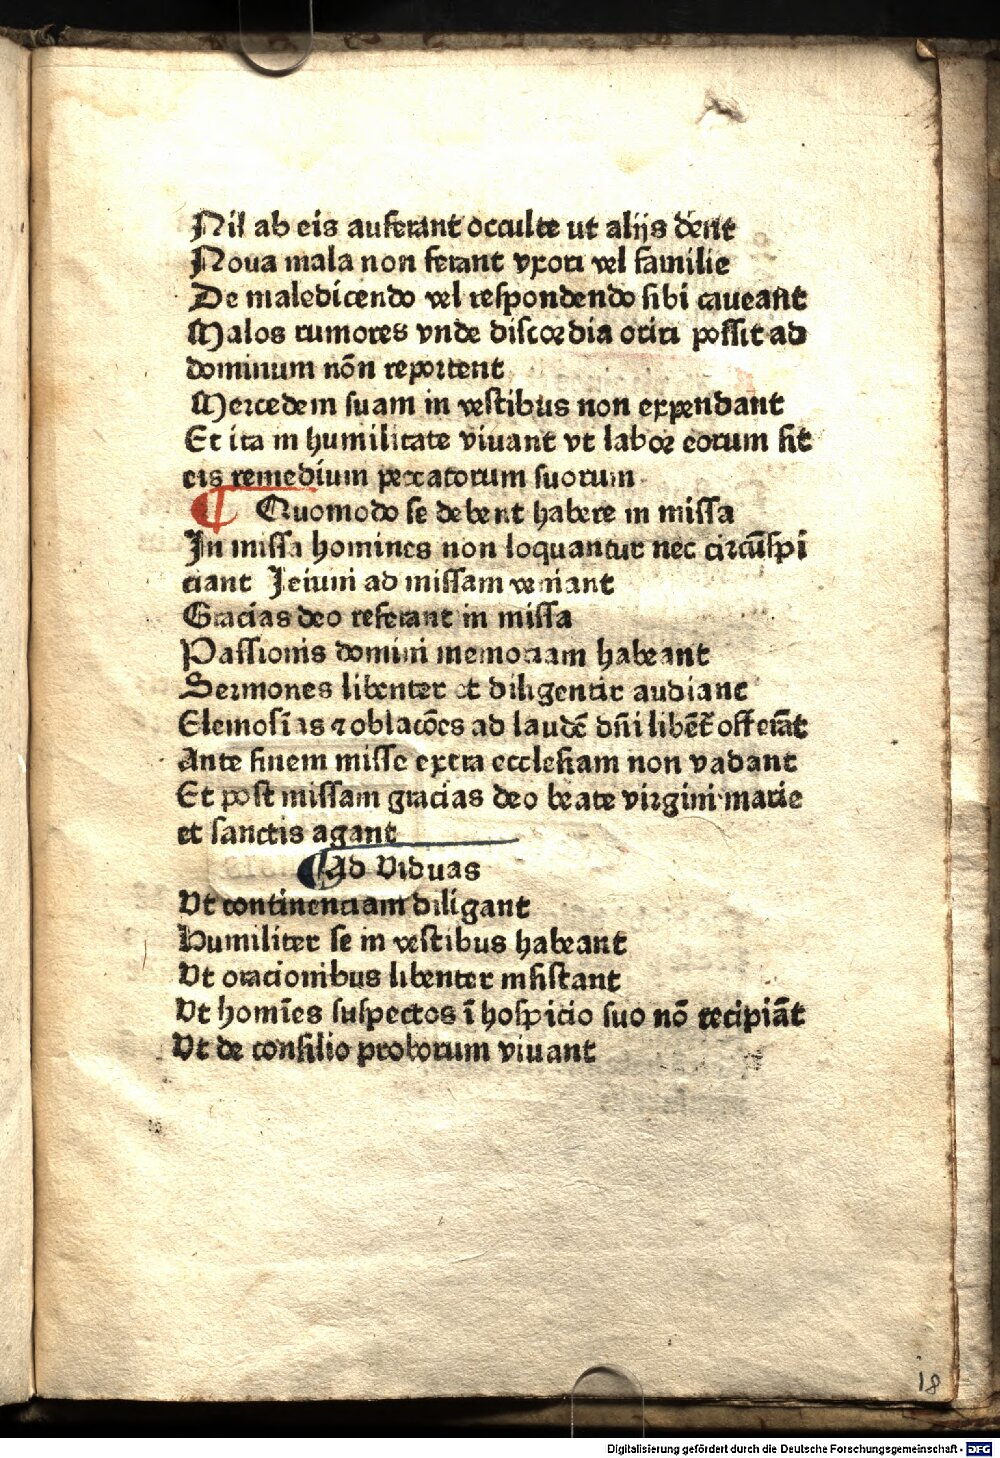 Nil ab eis auferant occulte ut alijs dent
Noua mala non ferant vxori vel familie
De maledicendo vel respondendo sibi caueant
Malos rumores vnde discordia oriri possit ad
dominum nõn reportent
Mercedem suam in vestibus non expendant
Et ita in humilitate viuant vt labor eorum sit
eis remedium peccatorum suorum
¶ Quomodo se debent habere in missa
In missa homines non loquantur nec circũspi
ciant Ieiuni ad missam veniant
Gracias deo referant in missa
Passionis domini memoriam habeant
Sermones libenter et diligenter audiant
Elemosĩas ⁊ oblacões ad laudẽ dñi libẽt̃ offerãt
Ante finem misse extra ecclesiam non vadant
Et post missam gracias deo beate virgini marie
et sanctis agant
¶ Ad Viduas
Vt continenciam diligant
Humiliter se in vestibus habeant
Vt oracionibus libenter insistant
Vt homĩes suspectos ĩ hospicio suo nõ recipiãt
Vt de consilio proborum viuant
18
Digitalisierung gefördert durch die Deutsche Forschungsgemeinschaft - DFG